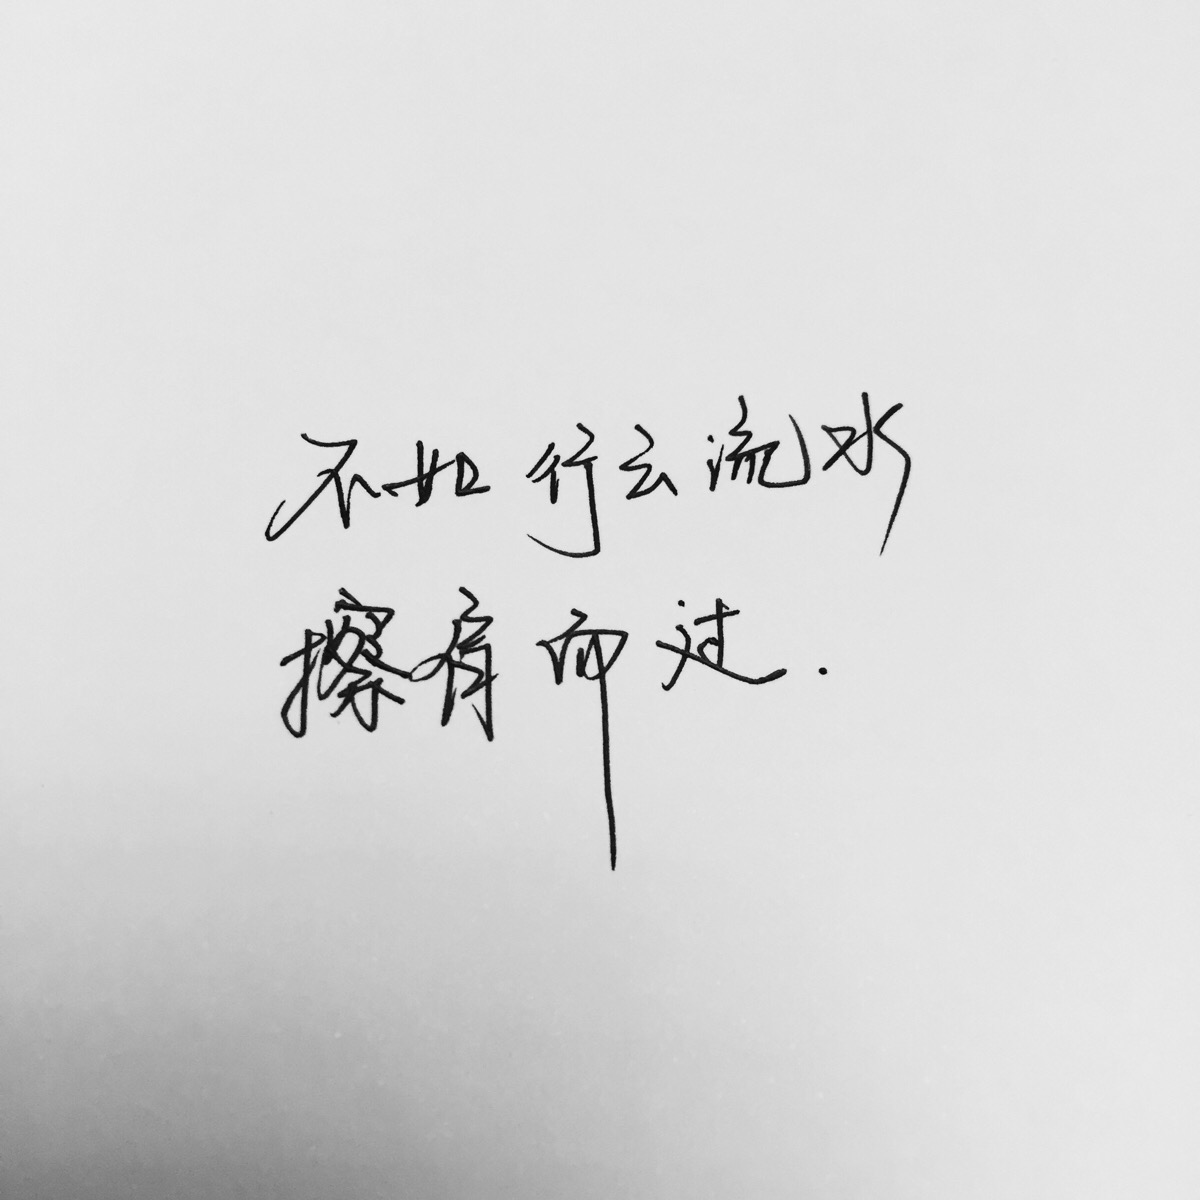 不如行云流水
擦肩而过.